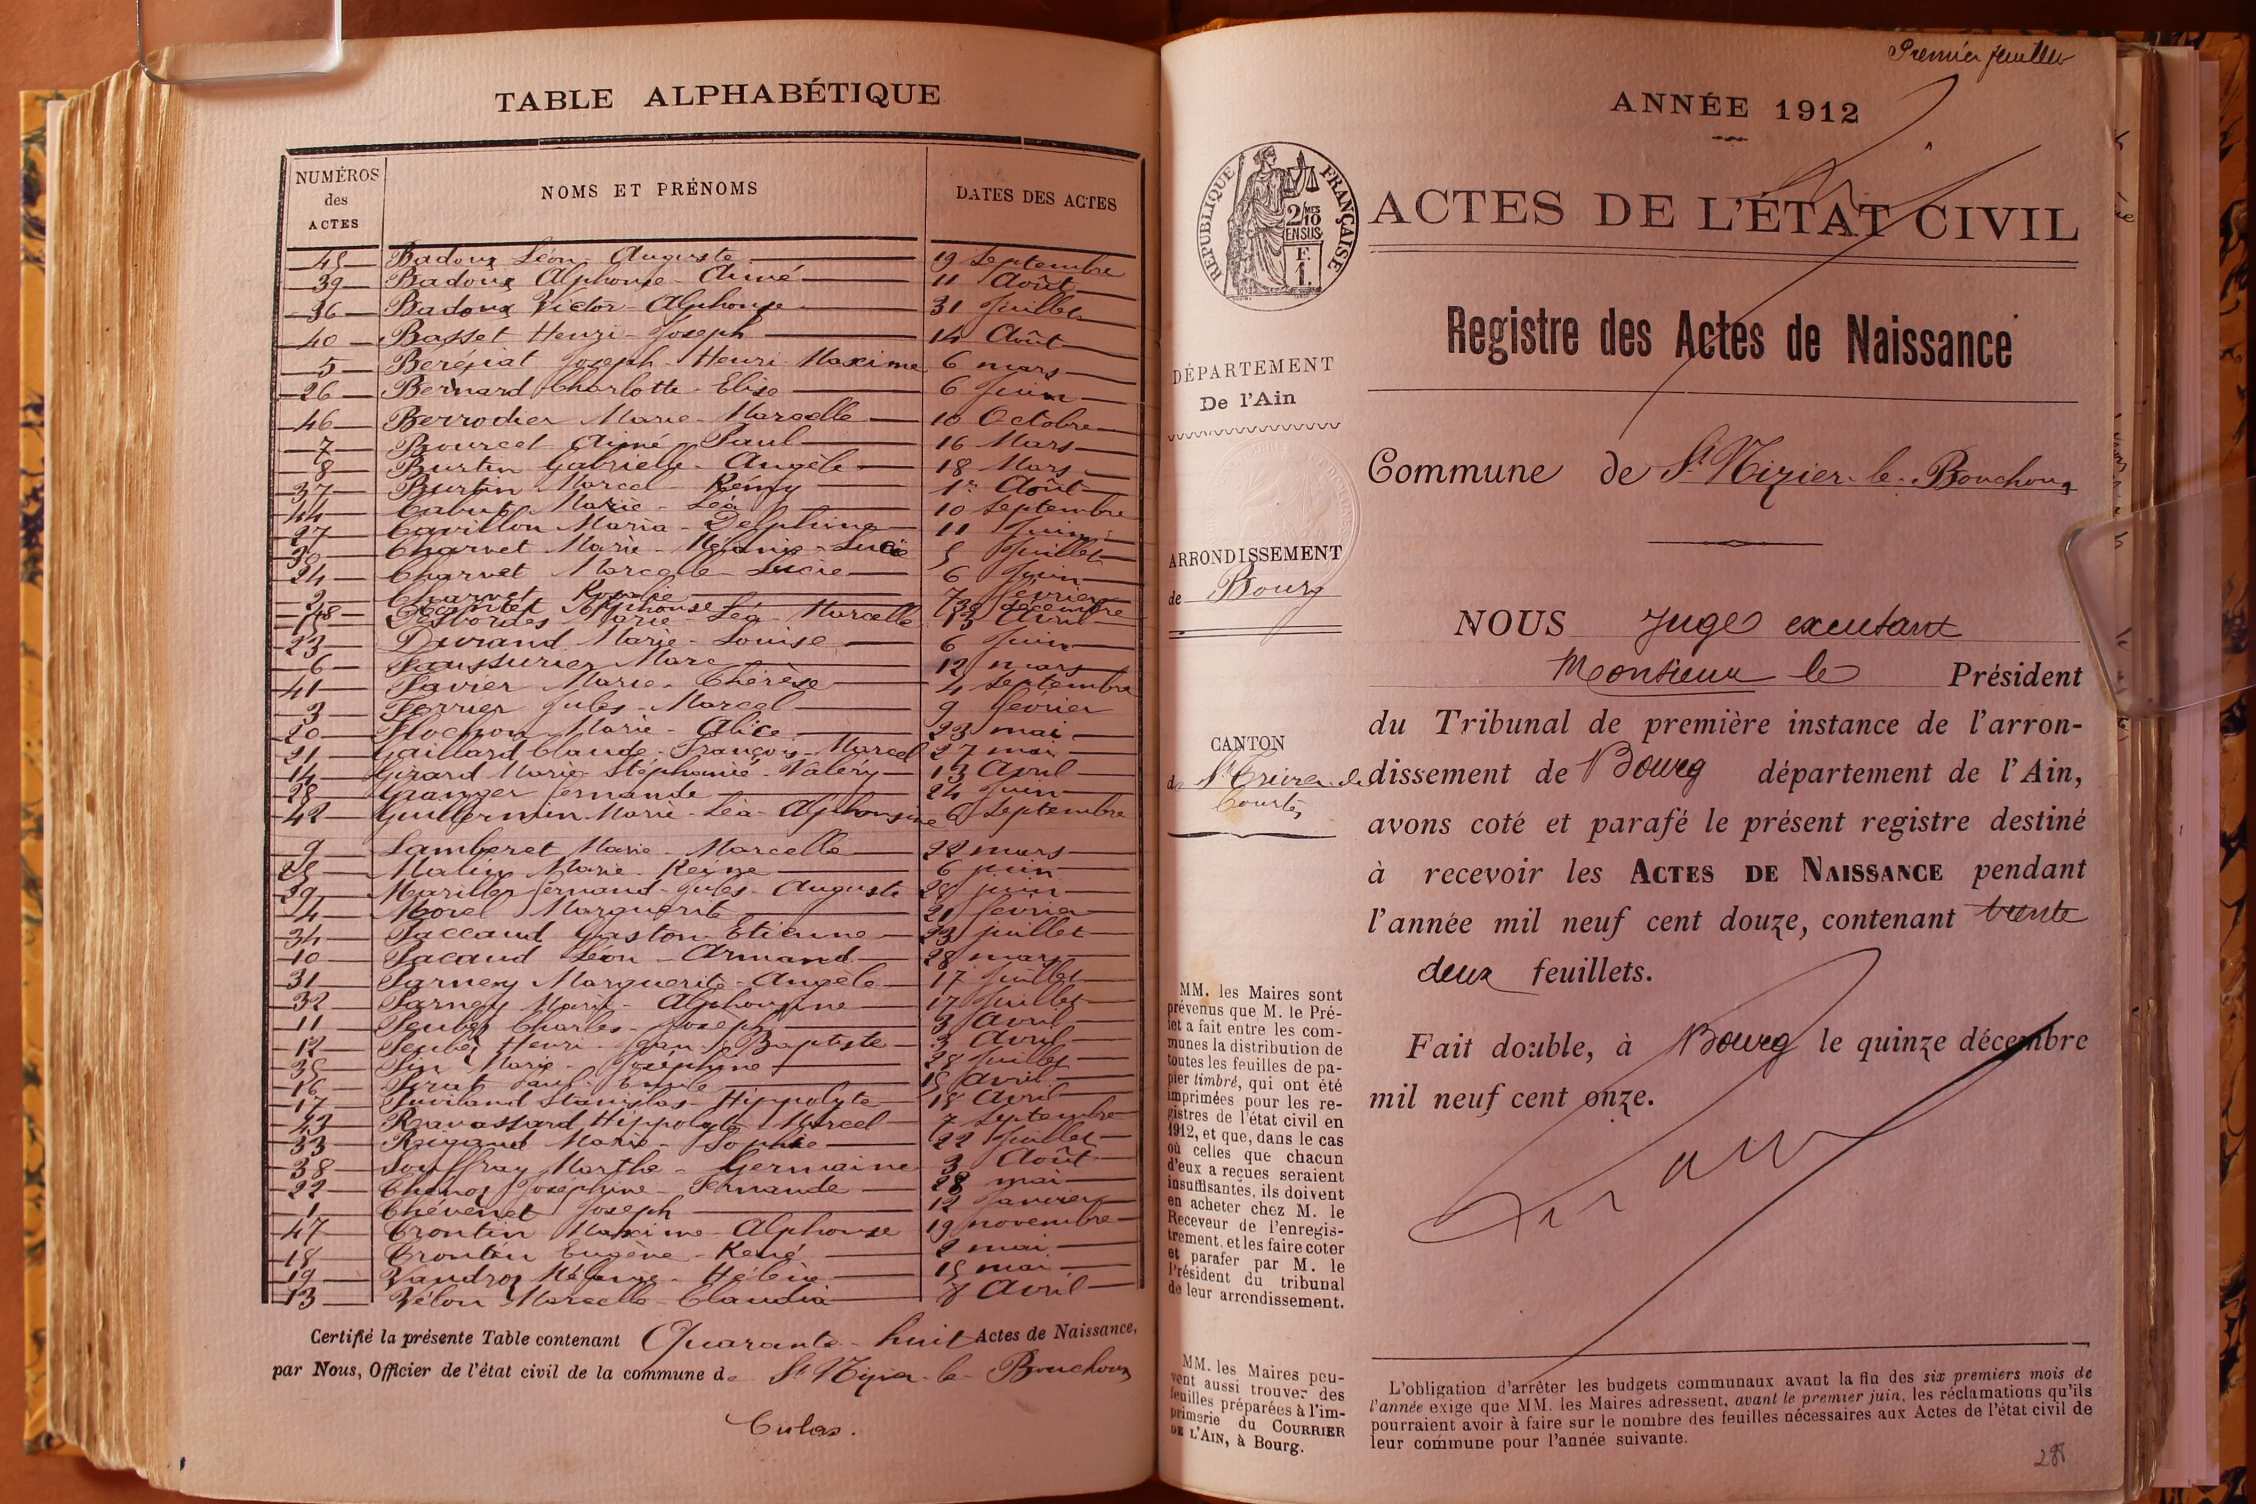 TABLE ALPHABÉTIQUE
NUMÉROS des ACTES NOMS ET PRÉNOMS DATES DES ACTES
45 Badoux Léon Auguste 19 Septembre
39 Badoux Alphonse Aimé 11 Août
36 Badoux Victor Alphonse 31 Juillet
40 Basset Henri Joseph 14 Août
5 Beréziat Joseph Henri Maxime 6 mars
26 Bernard Charlotte Elise 6 Juin
46 Berrodier Marie Marcelle 10 Octobre
7 Bourcet Aimé Paul 16 Mars
8 Burtin Gabrielle Angèle 18 Mars
37 Burtin Marcel Rémy 1er Août
44 Cabut Marie Léa 10 Septembre
27 Cavillon Maria Delphine 11 Juin
30 Charvet Marie Mélanie Lucie 5 Juillet
24 Charvet Marcelle Lucie 6 Juin
2 Charvet Rosalie 7 février
48 Alphonse 30 décembre
15 Desbordes Marie Léa Marcelle 13 Avril
23 Durand Marie Louise 6 Juin
6 Faussurier Marc 12 mars
41 Favier Marie Thérèse 4 Septembre
3 Ferrier Jules Marcel 9 février
20 Flochon Marie Alice 23 mai
21 Gaillard Claude François Marcel 27 mai
14 Girard Marie Stéphanie Valéry 13 Avril
28 Granger Fernande 24 Juin
42 Guillermin Marie Léa Alphonsine 6 Septembre
9 Lamberet Marie Marcelle 22 mars
25 Malin Marie Reine 6 juin
29 Mariller Fernand Jules Auguste 28 juin
4 Morel Marguerite 21 février
34 Paccaud Gaston Etienne 23 juillet
10 Pacaud Léon Armand 28 mars
31 Parney Marguerite Angèle 17 Juillet
32 Parney Marie Alphonsine 17 Juillet
11 Charles Joseph 3 Avril
12 Henri Jean Baptiste 3 Avril
35 Pin Marie Joséphine 28 Juillet
16 Paul Emile 15 avril
17 Stanislas Hippolyte 18 Avril
43 Ravassard Hippolyte Marcel 7 Septembre
33 Rigaud Marie Sophie 22 Juillet
38 Souffray Marthe Germaine 3 Août
22 Thenoz Joséphine Fernande 28 mai
1 Thévenet Joseph 12 Janvier
47 Trontin Maxime Alphonse 19 novembre
18 Trontin Eugène René 2 mai
19 Vandroz Mélanie Hélène 15 mai
13 Vélon Marcelle Claudia 8 Avril
Certifié la présente Table contenant Quarante-huit Actes de Naissance,
par Nous, Officier de l'état civil de la commune de St Nizier-le-Bouchoux
Premier feuillet
ANNÉE 1912
RÉPUBLIQUE FRANÇAISE
2/10 MES EN SUS
F. 1.
ACTES DE L'ÉTAT CIVIL
Registre des Actes de Naissance
DÉPARTEMENT
De l'Ain
Commune de St Nizier-le-Bouchoux
ARRONDISSEMENT
de Bourg
CANTON
de St Trivier de
Courtes
NOUS Juge exeutant
Monsieur le Président
du Tribunal de première instance de l'arron-
dissement de Bourg département de l'Ain,
avons coté et parafé le présent registre destiné
à recevoir les ACTES DE NAISSANCE pendant
l'année mil neuf cent douze, contenant trente
deux feuillets.
Fait double, à Bourg le quinze décembre
mil neuf cent onze.
MM. les Maires sont
prévenus que M. le Pré-
fet a fait entre les com-
munes la distribution de
toutes les feuilles de pa-
pier timbré, qui ont été
imprimées pour les re-
gistres de l'état civil en
1912, et que, dans le cas
où celles que chacun
d'eux a reçues seraient
insuffisantes, ils doivent
en acheter chez M. le
Receveur de l'enregis-
trement, et les faire coter
et parafer par M. le
Président du tribunal
de leur arrondissement.
MM. les Maires peu-
vent aussi trouver des
feuilles préparées à l'im-
primerie du COURRIER
DE L'AIN, à Bourg.
L'obligation d'arrêter les budgets communaux avant la fin des six premiers mois de
l'année exige que MM. les Maires adressent, avant le premier juin, les réclamations qu'ils
pourraient avoir à faire sur le nombre des feuilles nécessaires aux Actes de l'état civil de
leur commune pour l'année suivante.